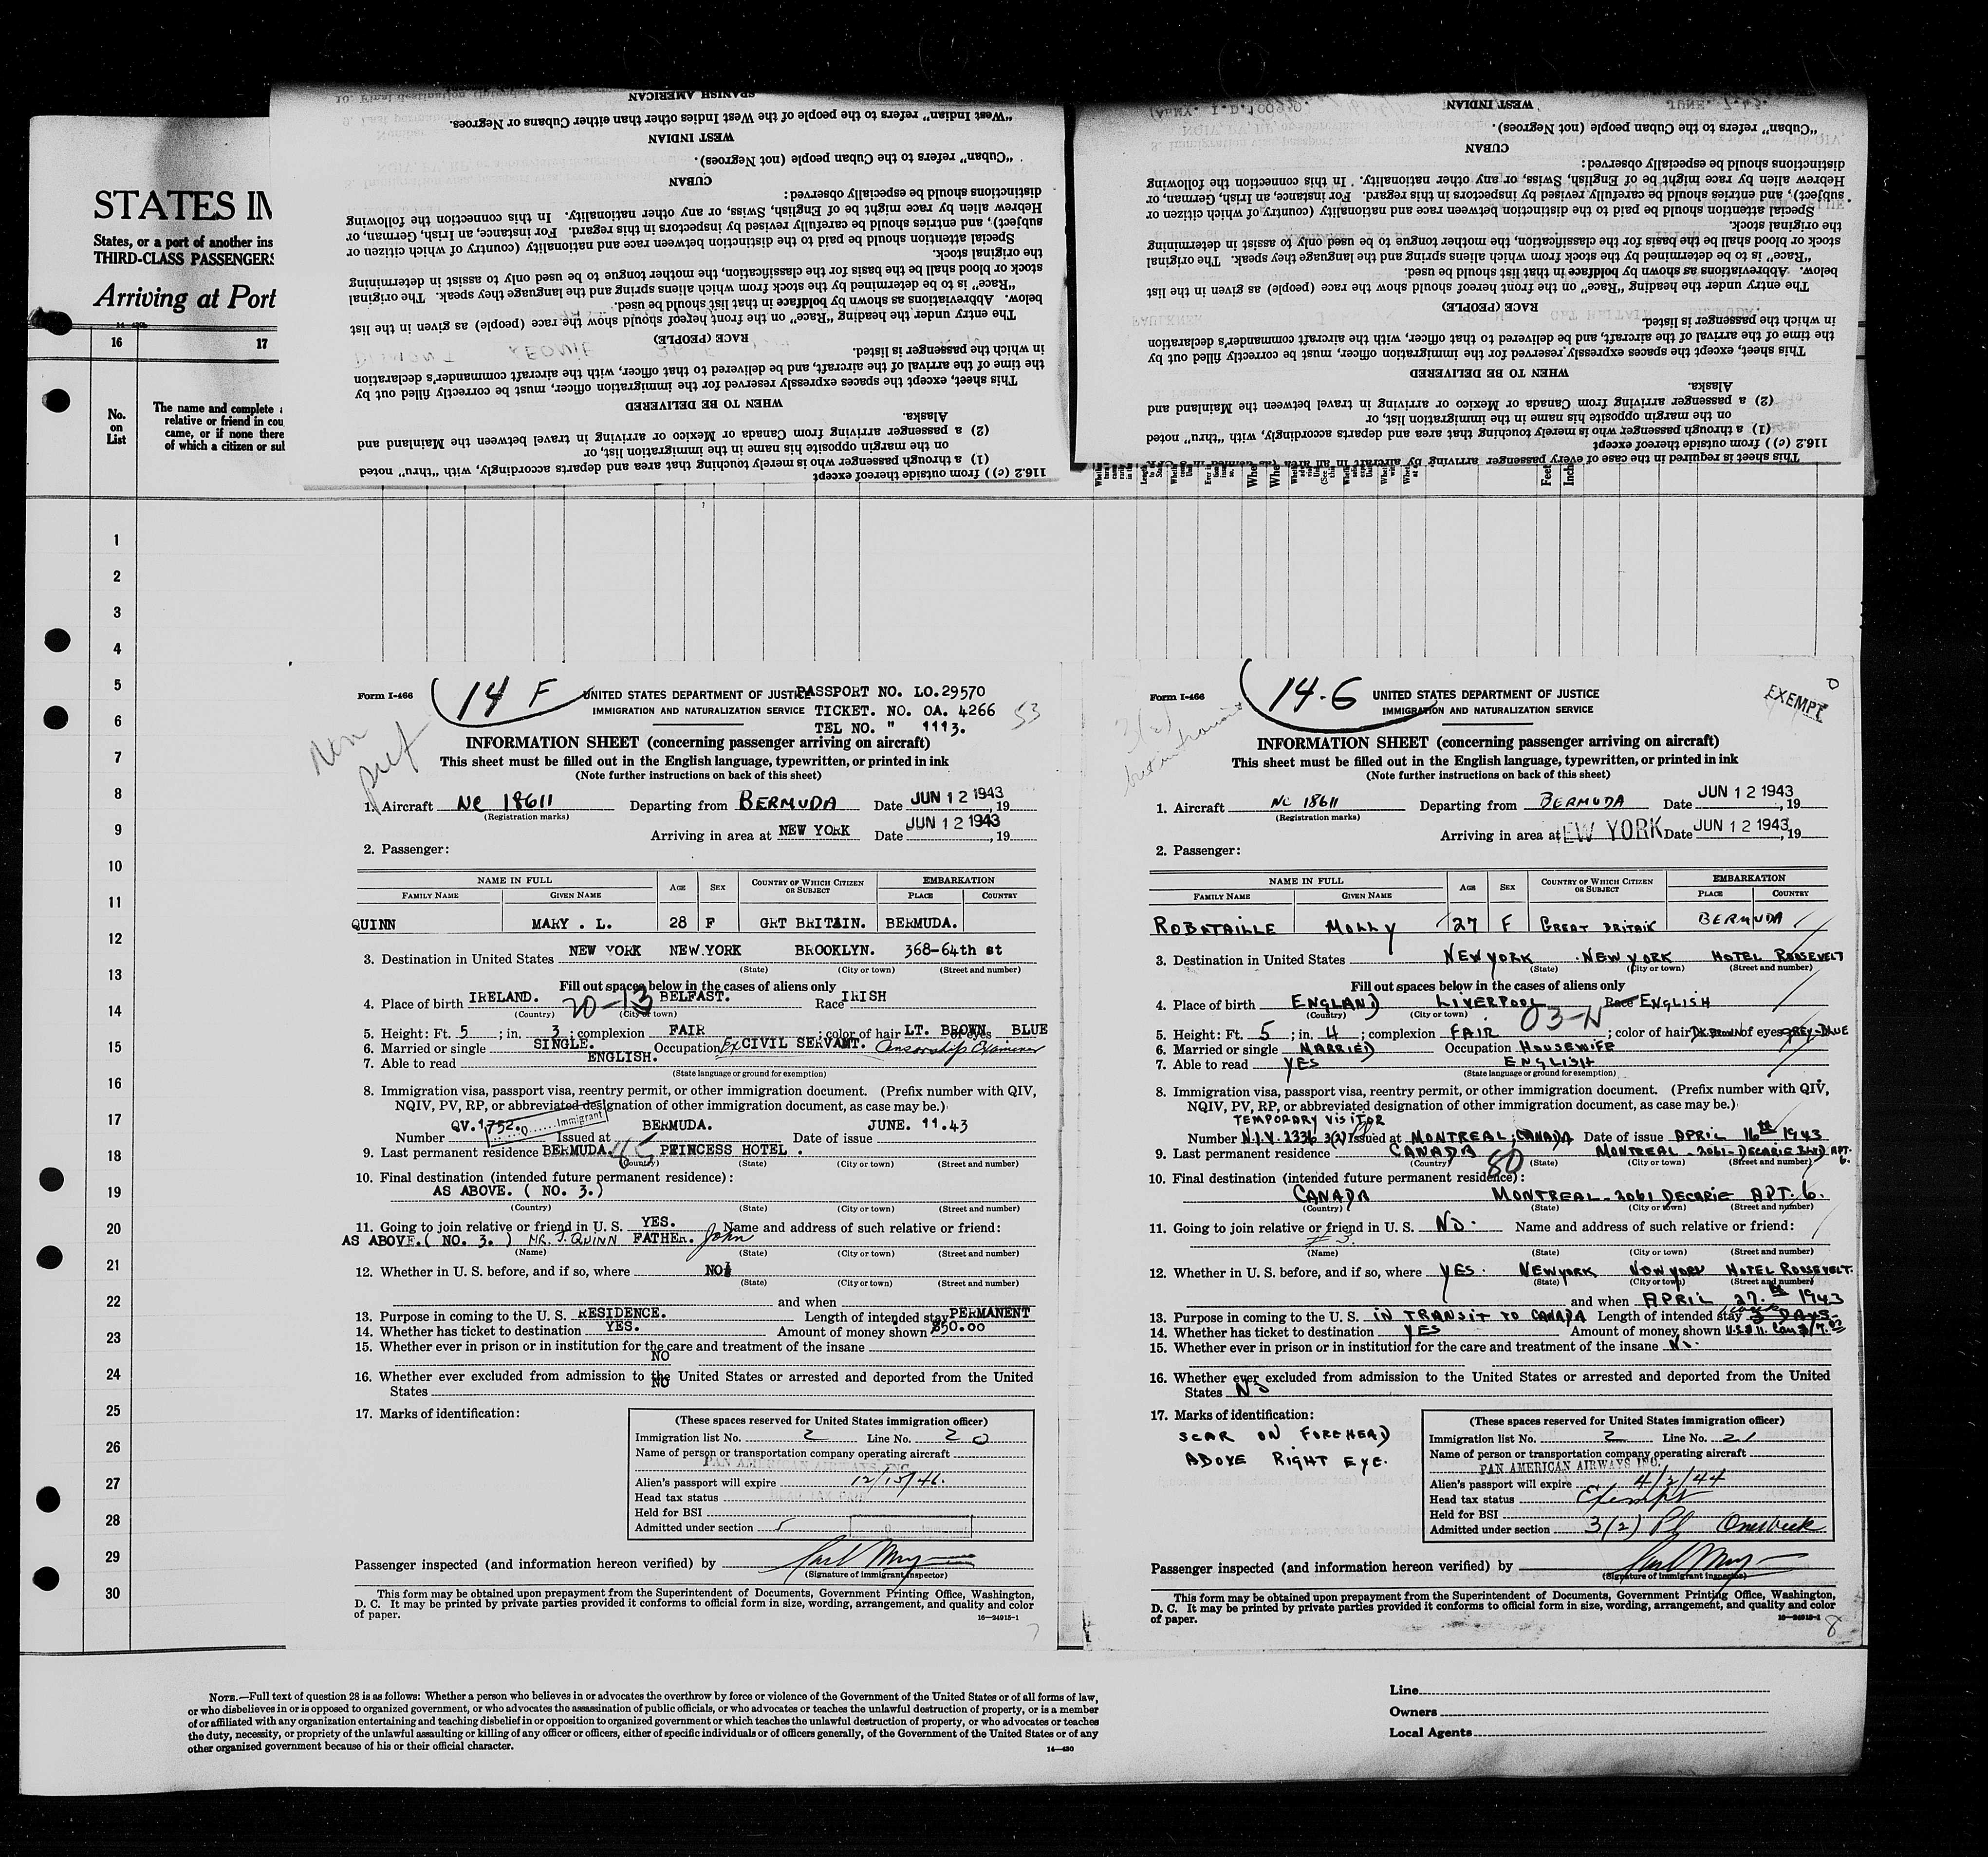 STATES IN
States, or a port of another ins
THIRD-CLASS PASSENGERS
Arriving at Port
16 17
No.
on
List
The name and complete
relative or friend in cou
came, or if none there
of which a citizen or sul
1
2
3
4
5
6
7
8
9
10
11
12
13
14
15
16
17
18
19
20
21
22
23
24
25
26
27
28
29
30
SPANISH AMERICAN
"West Indian" refers to the people of the West Indies other than either Cubans or Negroes.
WEST INDIAN
"Cuban" refers to the Cuban people (not Negroes).
CUBAN
distinctions should be especially observed:
Hebrew alien by race might be of English, Swiss, or any other nationality. In this connection the following
subject), and entries should be carefully revised by inspectors in this regard. For instance, an Irish, German, or
Special attention should be paid to the distinction between race and nationality (country of which citizen or
the original stock.
stock or blood shall be the basis for the classification, the mother tongue to be used only to assist in determining
"Race" is to be determined by the stock from which aliens spring and the language they speak. The original
below. Abbreviations as shown by boldface in that list should be used.
The entry under the heading "Race" on the front hereof should show the race (people) as given in the list
RACE (PEOPLE)
in which the passenger is listed.
the time of the arrival of the aircraft, and be delivered to that officer, with the aircraft commander's declaration
This sheet, except the spaces expressly reserved for the immigration officer, must be correctly filled out by
WHEN TO BE DELIVERED
Alaska.
(2) a passenger arriving from Canada or Mexico or arriving in travel between the Mainland and
on the margin opposite his name in the immigration list, or
(1) a through passenger who is merely touching that area and departs accordingly, with "thru" noted
116.2 (c) ) from outside thereof except
WEST INDIAN
"Cuban" refers to the Cuban people (not Negroes).
CUBAN
distinctions should be especially observed:
Hebrew alien by race might be of English, Swiss, or any other nationality. In this connection the following
subject), and entries should be carefully revised by inspectors in this regard. For instance, an Irish, German, or
Special attention should be paid to the distinction between race and nationality (country of which citizen or
the original stock.
stock or blood shall be the basis for the classification, the mother tongue to be used only to assist in determining
"Race" is to be determined by the stock from which aliens spring and the language they speak. The original
below. Abbreviations as shown by boldface in that list should be used.
The entry under the heading "Race" on the front hereof should show the race (people) as given in the list
RACE (PEOPLE)
in which the passenger is listed.
the time of the arrival of the aircraft, and be delivered to that officer, with the aircraft commander's declaration
This sheet, except the spaces expressly reserved for the immigration officer, must be correctly filled out by
WHEN TO BE DELIVERED
Alaska.
(2) a passenger arriving from Canada or Mexico or arriving in travel between the Mainland and
on the margin opposite his name in the immigration list, or
(1) a through passenger who is merely touching that area and departs accordingly, with "thru" noted
116.2 (c) ) from outside thereof except
This sheet is required in the case of every passenger arriving by aircraft in an area
Feet
Inch
Form I-466
14 F
UNITED STATES DEPARTMENT OF JUSTICE PASSPORT NO. LO.29570
IMMIGRATION AND NATURALIZATION SERVICE TICKET. NO. OA. 4266
TEL NO. " 1113.
53
Non
pref
INFORMATION SHEET (concerning passenger arriving on aircraft)
This sheet must be filled out in the English language, typewritten, or printed in ink
(Note further instructions on back of this sheet)
1. Aircraft NC 18611 Departing from BERMUDA Date JUN 12 1943, 19
(Registration marks)
Arriving in area at NEW YORK Date JUN 12 1943, 19
2. Passenger:
NAME IN FULL AGE SEX COUNTRY OF WHICH CITIZEN OR SUBJECT EMBARKATION
FAMILY NAME GIVEN NAME PLACE COUNTRY
QUINN MARY . L. 28 F GRT BRITAIN. BERMUDA.
3. Destination in United States NEW YORK NEW.YORK BROOKLYN. 368-64th st
(State) (City or town) (Street and number)
Fill out spaces below in the cases of aliens only
4. Place of birth IRELAND. 20-13 BELFAST. Race IRISH
(Country) (City or town)
5. Height: Ft. 5; in. 3; complexion FAIR; color of hair LT. BROWN of eyes BLUE
6. Married or single SINGLE. Occupation Ex CIVIL SERVANT. Censorship Examiner
7. Able to read ENGLISH.
(State language or ground for exemption)
8. Immigration visa, passport visa, reentry permit, or other immigration document. (Prefix number with QIV,
NQIV, PV, RP, or abbreviated designation of other immigration document, as case may be.)
Number QV.1752. Immigrant Issued at BERMUDA. Date of issue JUNE. 11.43
9. Last permanent residence BERMUDA. 85 PRINCESS HOTEL .
(Country) (State) (City or town) (Street and number)
10. Final destination (intended future permanent residence):
AS ABOVE. ( NO. 3.)
(Country) (State) (City or town) (Street and number)
11. Going to join relative or friend in U. S. YES. Name and address of such relative or friend:
AS ABOVE.( NO. 3. ) MR. J. QUINN FATHER. John
(Name) (State) (City or town) (Street and number)
12. Whether in U. S. before, and if so, where NO
(State) (City or town) (Street and number)
and when
13. Purpose in coming to the U. S. RESIDENCE. Length of intended stay PERMANENT
14. Whether has ticket to destination YES. Amount of money shown $50.00
15. Whether ever in prison or in institution for the care and treatment of the insane
NO
16. Whether ever excluded from admission to the United States or arrested and deported from the United
States NO
17. Marks of identification:
(These spaces reserved for United States immigration officer)
Immigration list No. 2 Line No. 20
Name of person or transportation company operating aircraft
PAN AMERICAN AIRWAYS, INC.
Alien's passport will expire 12/15/46.
Head tax status HEAD TAX PAID
Held for BSI
Admitted under section 5
Passenger inspected (and information hereon verified) by
(Signature of immigrant inspector)
This form may be obtained upon prepayment from the Superintendent of Documents, Government Printing Office, Washington,
D. C. It may be printed by private parties provided it conforms to official form in size, wording, arrangement, and quality and color
of paper.
16—24915-1
7
Form I-466
14-G
UNITED STATES DEPARTMENT OF JUSTICE
IMMIGRATION AND NATURALIZATION SERVICE
EXEMPT
3(2)
INFORMATION SHEET (concerning passenger arriving on aircraft)
This sheet must be filled out in the English language, typewritten, or printed in ink
(Note further instructions on back of this sheet)
1. Aircraft NC 18611 Departing from BERMUDA Date JUN 12 1943, 19
(Registration marks)
Arriving in area at EW YORK Date JUN 12 1943, 19
2. Passenger:
NAME IN FULL AGE SEX COUNTRY OF WHICH CITIZEN OR SUBJECT EMBARKATION
FAMILY NAME GIVEN NAME PLACE COUNTRY
ROBATAILLE MOLLY 27 F GREAT BRITAIN BERMUDA
3. Destination in United States NEW YORK NEW YORK HOTEL ROOSEVELT
(State) (City or town) (Street and number)
Fill out spaces below in the cases of aliens only
4. Place of birth ENGLAND LIVERPOOL Race ENGLISH
(Country) (City or town) 03-
5. Height: Ft. 5; in. 4; complexion FAIR; color of hair DK BROWN of eyes GREY-BLUE
6. Married or single MARRIED Occupation HOUSEWIFE
7. Able to read YES ENGLISH
(State language or ground for exemption)
8. Immigration visa, passport visa, reentry permit, or other immigration document. (Prefix number with QIV,
NQIV, PV, RP, or abbreviated designation of other immigration document, as case may be.)
TEMPORARY VISITOR
Number N.I.V. 2336 3(2) Issued at MONTREAL, CANADA Date of issue APRIL 16th 1943
9. Last permanent residence CANADA 80 MONTREAL - 2061 - DECARIE BLVD APT. 6.
(Country) (State) (City or town) (Street and number)
10. Final destination (intended future permanent residence):
CANADA MONTREAL - 2061 DECARIE APT. 6.
(Country) (State) (City or town) (Street and number)
11. Going to join relative or friend in U. S. NO. Name and address of such relative or friend:
(Name) (State) (City or town) (Street and number)
12. Whether in U. S. before, and if so, where YES. NEW YORK NEW YORK HOTEL ROOSEVELT.
(State) (City or town) (Street and number)
and when APRIL 27.th 1943
13. Purpose in coming to the U. S. IN TRANSIT TO CANADA Length of intended stay 3 DAYS
14. Whether has ticket to destination YES Amount of money shown
15. Whether ever in prison or in institution for the care and treatment of the insane NO.
16. Whether ever excluded from admission to the United States or arrested and deported from the United
States NO
17. Marks of identification:
SCAR ON FOREHEAD
ABOVE RIGHT EYE.
(These spaces reserved for United States immigration officer)
Immigration list No. 2 Line No. 21
Name of person or transportation company operating aircraft
PAN AMERICAN AIRWAYS INC.
Alien's passport will expire 4/2/44
Head tax status Exempt
Held for BSI
Admitted under section 3(2)
Passenger inspected (and information hereon verified) by
(Signature of immigrant inspector)
This form may be obtained upon prepayment from the Superintendent of Documents, Government Printing Office, Washington,
D. C. It may be printed by private parties provided it conforms to official form in size, wording, arrangement, and quality and color
of paper.
16—24915-1
8
NOTE.—Full text of question 28 is as follows: Whether a person who believes in or advocates the overthrow by force or violence of the Government of the United States or of all forms of law,
or who disbelieves in or is opposed to organized government, or who advocates the assassination of public officials, or who advocates or teaches the unlawful destruction of property, or is a member
of or affiliated with any organization entertaining and teaching disbelief in or opposition to organized government or which teaches the unlawful destruction of property, or who advocates or teaches
the duty, necessity, or propriety of the unlawful assaulting or killing of any officer or officers, either of specific individuals or of officers generally, of the Government of the United States or of any
other organized government because of his or their official character.
14—430
Line
Owners
Local Agents